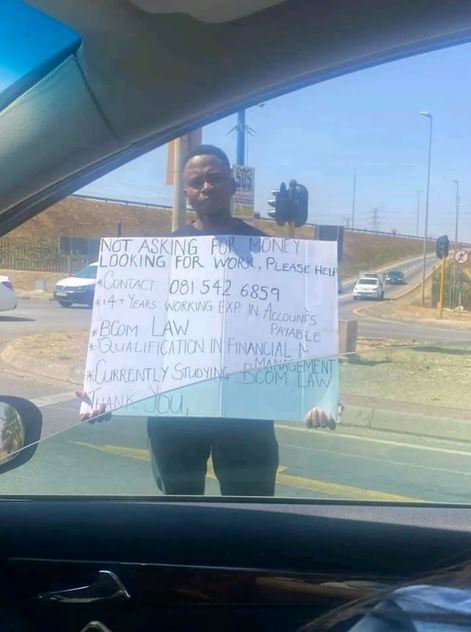 NOT ASKING FOR MONEY
LOOKING FOR WORK, PLEASE HELP
*CONTACT 081 542 6859
*14+ YEARS WORKING EXP IN ACCOUNTS
PAYABLE
*BCOM LAW
*QUALIFICATION IN FINANCIAL
MANAGEMENT
*CURRENTLY STUDYING BCOM LAW
THANK YOU,